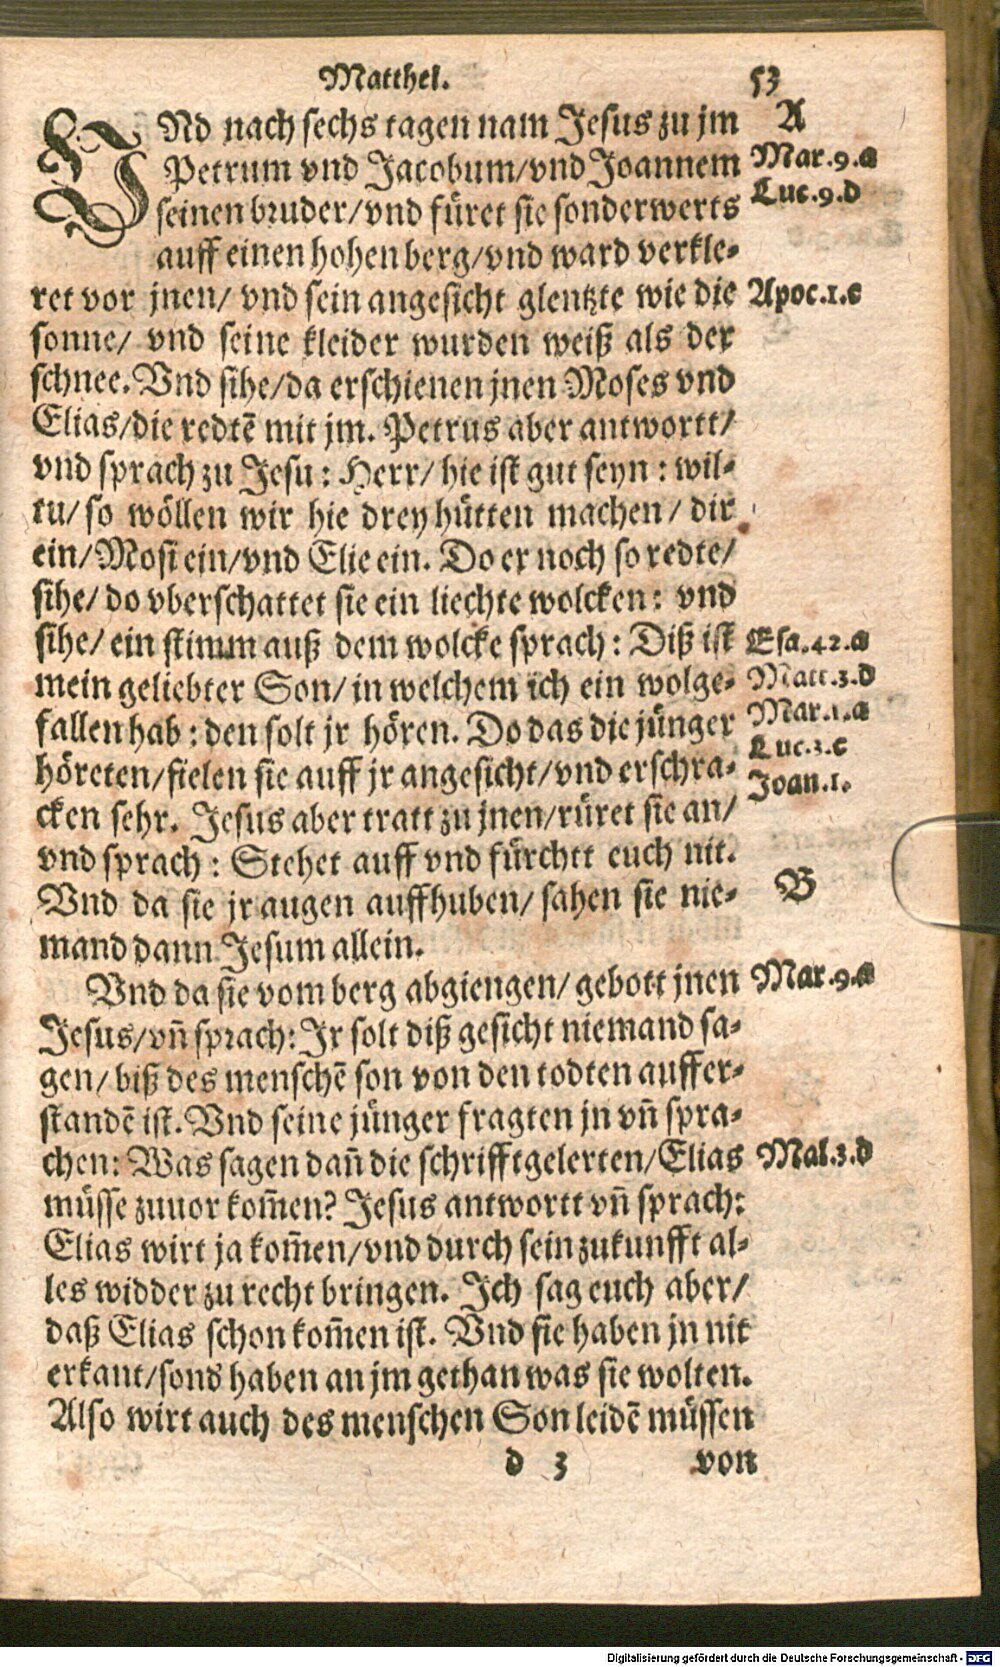 Matthei. 53
VNd nach sechs tagen nam Jesus zu jm A
Petrum vnd Jacobum/vnd Joannem Mar.9.a
seinen bruder/vnd füret sie sonderwerts Luc.9.d
auff einen hohen berg/vnd ward verkle⸗
ret vor jnen/ vnd sein angesicht glentzte wie die Apoc.1.c
sonne/ vnd seine kleider wurden weiß als der
schnee. Vnd sihe/da erschienen jnen Moses vnd
Elias/die redtē mit jm. Petrus aber antwortt/
vnd sprach zu Jesu: Herr/ hie ist gut seyn: wil⸗
tu/ so wöllen wir hie drey hütten machen/ dir
ein/Mosi ein/vnd Elie ein. Do er noch so redte/
sihe/ do vberschattet sie ein liechte wolcken: vnd
sihe/ ein stimm auß dem wolcke sprach: Diß ist Esa.42.a
mein geliebter Son/ in welchem ich ein wolge⸗ Matt.3.d
fallen hab: den solt jr hören. Do das die jünger Mar.1.a
Luc.3.c
höreten/fielen sie auff jr angesicht/vnd erschra⸗ Joan.1.
cken sehr. Jesus aber tratt zu jnen/rüret sie an/
vnd sprach: Stehet auff vnd fürchtt euch nit.
Vnd da sie jr augen auffhuben/ sahen sie nie⸗ B
mand dann Jesum allein.
Vnd da sie vom berg abgiengen/ gebott jnen Mar.9.a
Jesus/vñ sprach: Jr solt diß gesicht niemand sa⸗
gen/ biß des menschē son von den todten auffer⸗
standē ist. Vnd seine jünger fragten jn vñ spra⸗
chen: Was sagen dañ die schrifftgelerten/Elias Mal.3.d
müsse zuuor kom̄en? Jesus antwortt vñ sprach:
Elias wirt ja kom̄en/vnd durch sein zukunfft al⸗
les widder zu recht bringen. Ich sag euch aber/
daß Elias schon kom̄en ist. Vnd sie haben jn nit
erkant/sond haben an jm gethan was sie wolten.
Also wirt auch des menschen Son leidē müssen
d 3 von
Digitalisierung gefördert durch die Deutsche Forschungsgemeinschaft - DFG